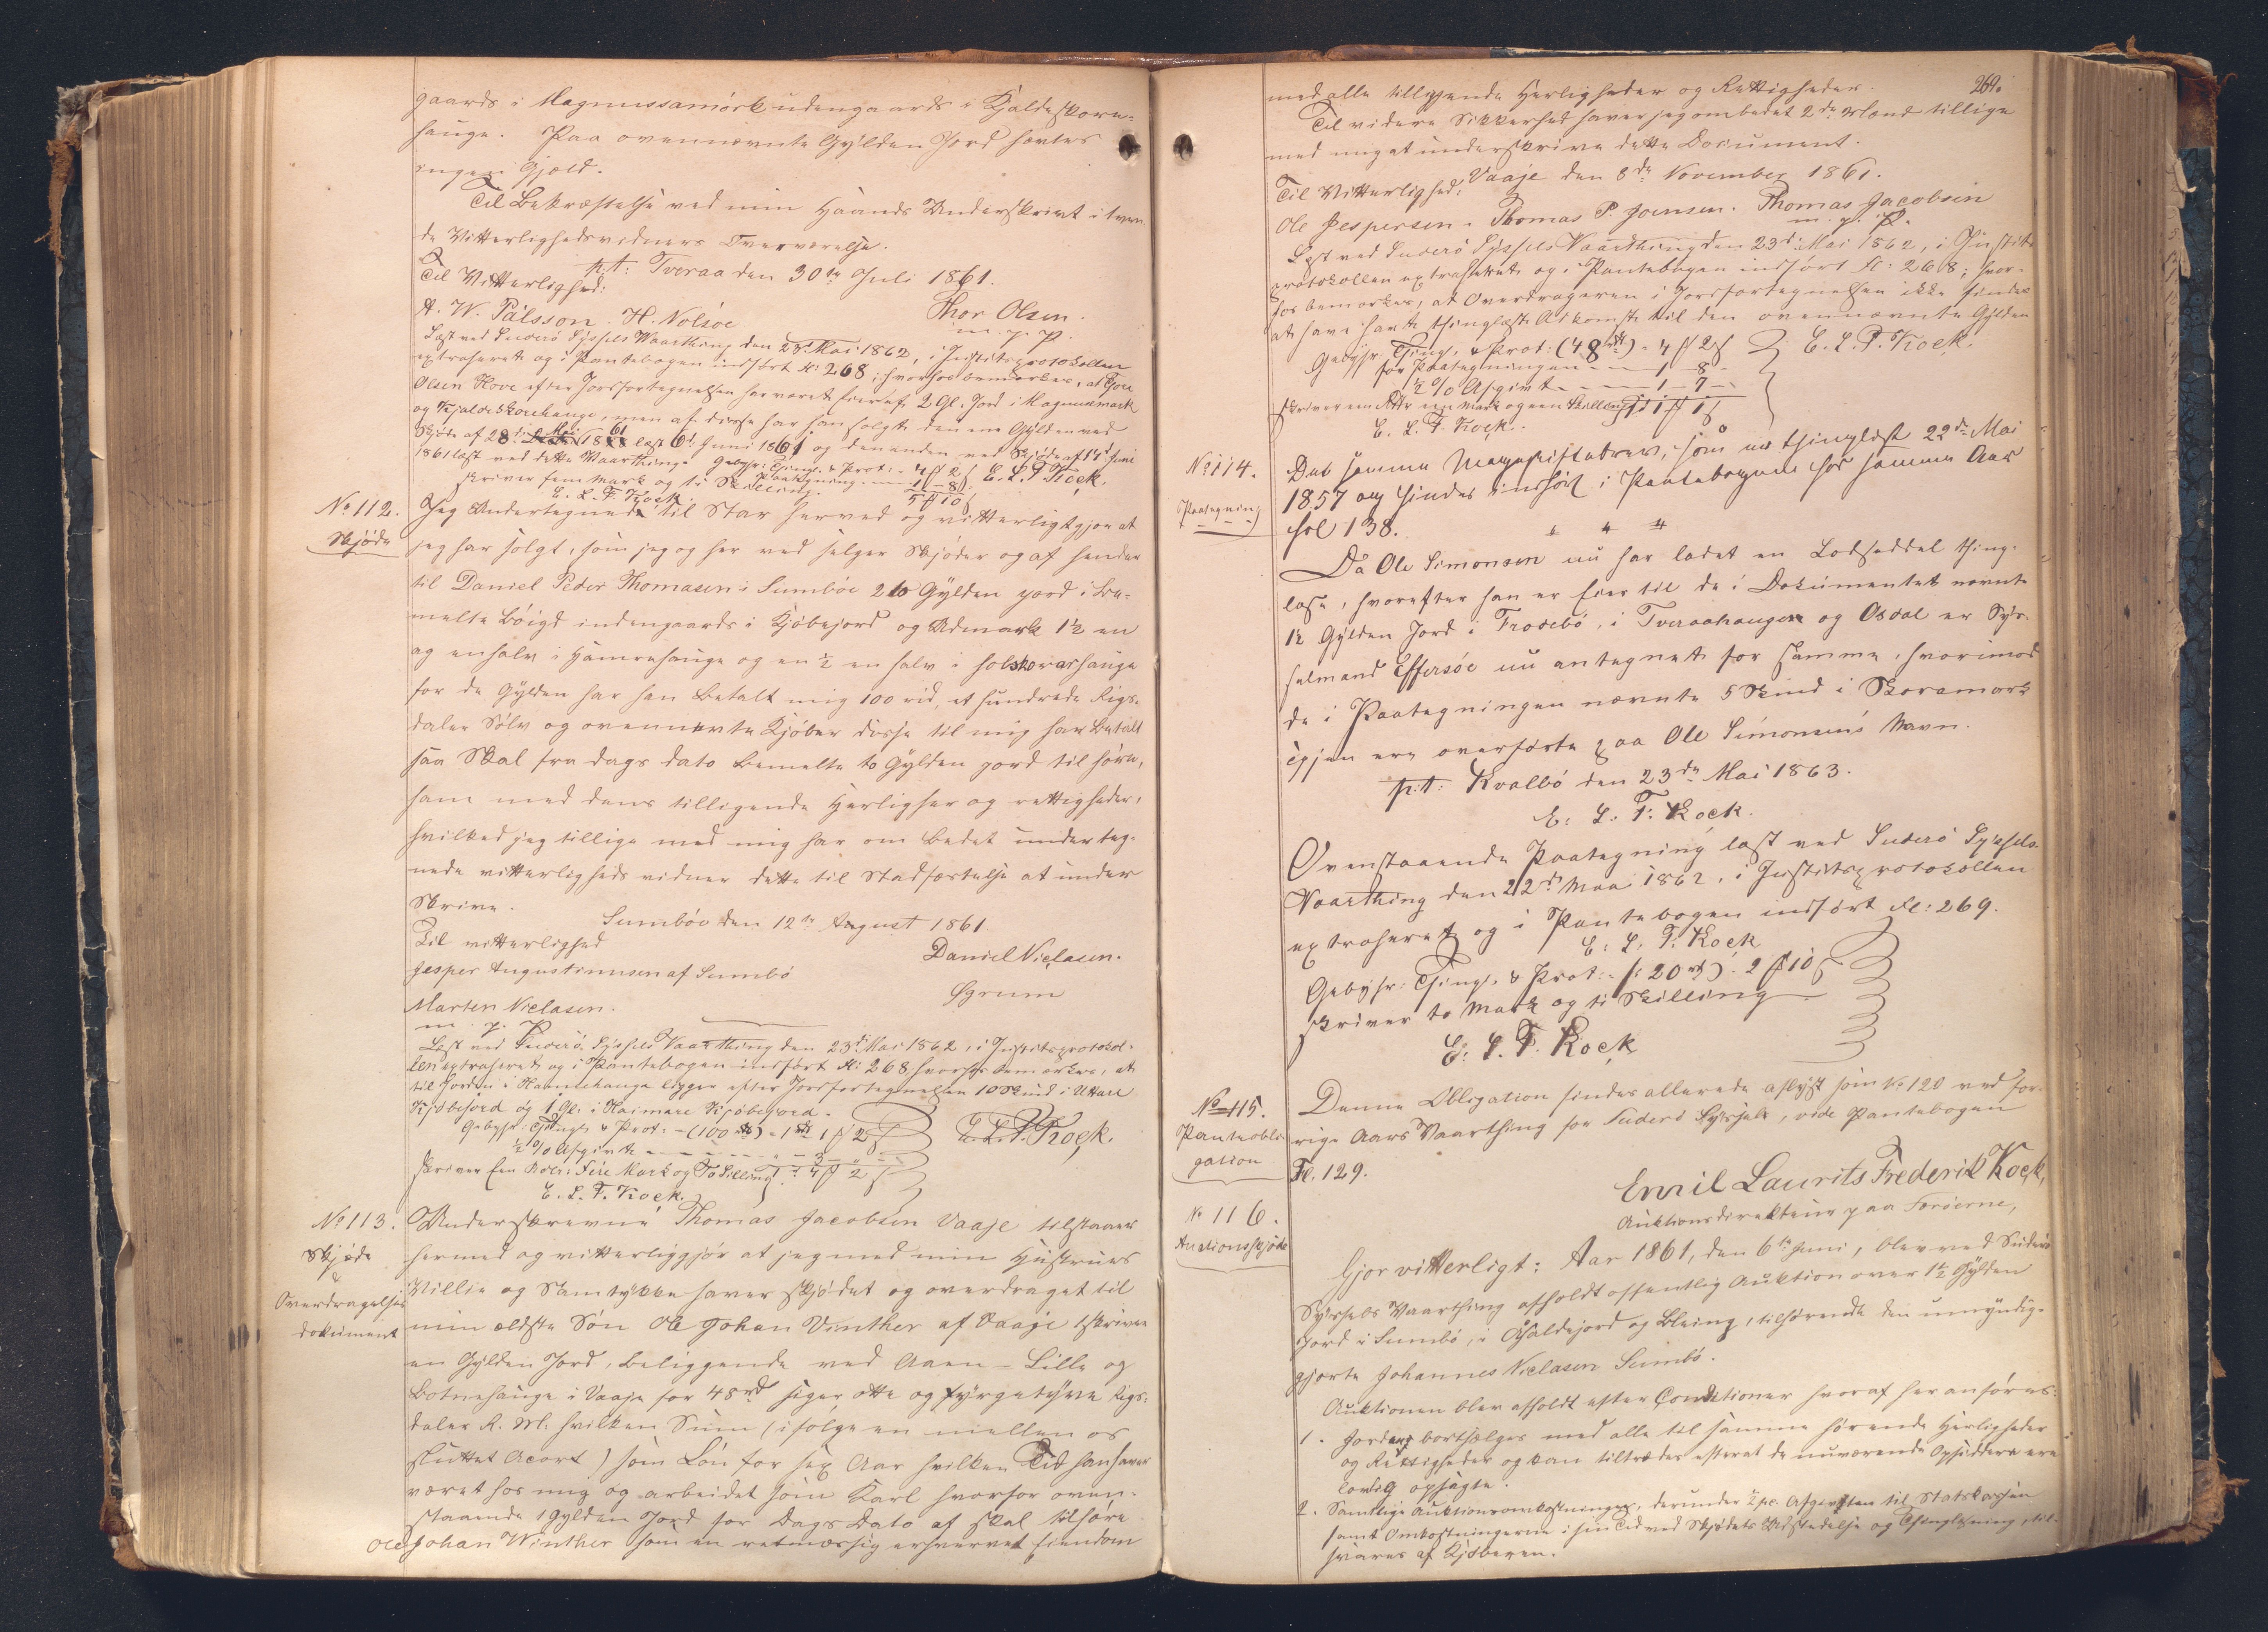 gaards i Magnussamörk udengaards i Kjaldeskore-
hauge. Paa ovennævnte Gylden Jord haves
ingen Gjæld.
Til Bekræftelse ved min Haands Underskrivt i tven-
de Vitterlighedsvidners Overværelse.
p.t: Tveraa den 30te Juli 1861.
Til Vitterlighed:
A. W. Pálsson. H. Nolsøe Thor Olsen.
m. p. p.
Læst ved Suderö Syssels Vaarthing den 23d Mai 1862, i Justitsprotokollen
extraheret og i Pantebogen indført Fl: 268; hvorhos bemærkes, at Thor
Olsen Hove efter Jordfortegnelsen har været Eier af 2 Gl. Jord i Magnusmark
og Kjaldeskorehauge, men af disse har han solgt den ene Gylden ved
Skjöde af 28de Mai 1861 læst 6te Juni 1861 og den anden ved Skjöde af 11' Juni
1861 læst ved dette Vaarthing. Gebyhr: Thingl. & Prot: - 4 ℳ 2 ß.
Paategning 1 - 8 ß. E. L. F. Kock.
skriver fem Mark og ti Skilling. 5 ℳ 10 ß
E. L. F. Kock.
No 112.
Skjöde
Jeg Undertegnede til Staar herved og vitterligtgjør at
jeg har solgt, som jeg og her ved selger Skjöder og af hender
til Daniel Peder Thomasen i Sumböe 2 to Gylden jord i be-
melte Böigd indengaards i Kjöbejord og Udmark 1½ en
og en halv i Hamrehauge og en ½ en halv i holskorarhauge
for de Gylden har han Betalt mig 100 rd, et hundrede Rigs-
daler Sølv og ovennævnte Kjöber disse til mig har Betalt
saa Skal fra dags dato bemelte to Gylden jord til höre,
ham med dens tilligende Herligher og rettigheder,
hvilked jeg tillige med mig har om Bedet underteg-
nede vitterligheds vidner dette til Stadfæstelse at under
Skrive.
Sumböe den 12te August 1861.
Til vitterlighed
Jesper Augustinusen af Sumbö Daniel Niclasen.
Marten Niclasen. Ögrum
m. p. p.
Læst ved Suderö Syssels Vaarthing den 23d Mai 1862, i Justitsprotokol-
len extraheret og i Pantebogen indført Fl: 268, hvorhos bemærkes, at
til Jorden i Hamrehauge ligger efter Jordfortegnelsen 10 Skind i Uttare
Kjöbejord og 1 Gl. i Haimare Kjöbejord.
Gebyhr: Thingl. & Prot: - (100 rd) - 1 rd 1 ℳ 2 ß
½ % Afgivt - - - - - " - 3 - "
skriver Een Rdlr: Fire Mark og To Skilling 1 " 4 ℳ 2 ß E. L. F. Kock.
E. L. F. Kock.
No 113.
Skjøde
&
Overdragelses
dokument
Underskrevne Thomas Jacobsen Vaaje tilstaaer
hermed og vitterliggjör at jeg med min Hustrues
Villie og Samtykke haver skjödet og overdraget til
min ældste Sön Ole Johan Vinther af Vaaje skriver
en Gylden Jord, beliggende ved Aaen - Lille og
Botnehauge i Vaaje for 48 rd siger otte og fyrgetyve Rigs-
daler R. M. hvilken Sum (ifølge en mellem os
sluttet Acort) som Løn for sex Aar hvilken Tid han haver
været hos mig og arbeidet som Karl hvorfor oven-
staaende 1 Gylden Jord for Dags Dato af skal tilhøre
Ole Johan Winther som en retmæssig erhvervet Eiendom
269.
med alle tilligende Herligheder og Rettigheder.
Til videre Sikkerhed haver jeg ombedet 2de Mænd tillige
med mig at underskrive dette Document.
Vaaje den 8de November 1861.
Til Vitterlighed:
Ole Jespersen. Thomas P. Joensen. Thomas Jacobsen
m. p. P.
Læst ved Suderö Syssels Vaarthing den 23d Mai 1862, i Justits-
protokollen extraheret og i Pantebogen indført Fl. 268; hvor-
hos bemærkes, at Overdrageren i Jordfortegnelsen ikke findes
at have havt thinglæst Adkomst til den ovennævnte Gylden
Gebyhr: Thingl. & Prot: (48 rd) - 4 ℳ 2 ß
for Paategningen - - - 1 - 8 - E. L. F. Kock.
½ % Afgivt - - - - 1 - 7 -
E. L. F. Kock.
No 114.
Paategning
Det samme Magaskiftebrev, som er thinglæst 22de Mai
1857 og findes indført i Pantebogen for samme Aar
fol 138.
Da Ole Simonsen nu har ladet en Lodseddel thing-
læse, hvorefter han er Eier til de i Dokumentet nævnte
1½ Gylden Jord i Trodebö, i Tveraahaugen og Osdal er Sys-
selmand Effersöe nu antegnet for samme, hvorimod
de i Paategningen nævnte 5 Skind i Skoramork
igjen ere overførte paa Ole Simonsens Navn.
p.t. Kvalbö den 23de Mai 1863.
E. L. F. Kock.
Ovenstaaende Paategning læst ved Suderö Syssels-
Vaarthing den 22de Maa 1862, i Justitsprotokollen
extraheret og i Pantebogen indført Fl: 269.
E. L. F. Kock
Gebyhr: Thingl. & Prot: - (: 20 rd) - 2 ℳ 10 ß
skriver to Mark og ti Skilling
E. L. F. Kock
No 115.
Panteobli-
gation
Denne Obligation findes allerede aflyst som No 120 ved for-
rige Aars Vaarthing for Suderö Syssel, vide Pantebogen
Fl. 129.
No 116.
Auctionsskjöde
Emil Laurits Frederik Kock,
Auktionsdirekteur paa Færöerne,
Gjør vitterligt: Aar 1861, den 6te Juni, blev ved Suderö
Syssels Vaarthing afholdt offentlig Auktion over 1½ Gylden
Jord i Sumbö, i Ohaldejord og Bleing, tilhørende den umyndig-
gjorte Johannes Niclasen Sumbö.
Auktionen blev afholdt efter Conditioner hvoraf her anføres:
1. Jorden bortsælges med alle til samme hørende Herligheder
og Rettigheder og kan tiltrædes efterat de nuværende Opsiddere ere
lovlig opsagte.
2. Samtlige Auktionsomkostninger, derunder ½ pc. Afgivten til Statskassen
samt Omkostningerne i sin Tid ved Skjödets Udstedelse og Thinglæsning, til-
svares af Kjöberen.